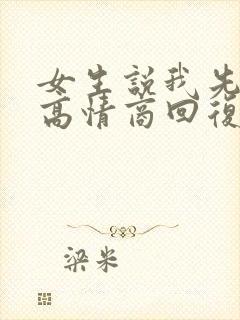 女生説我先
高情商回復
梁米